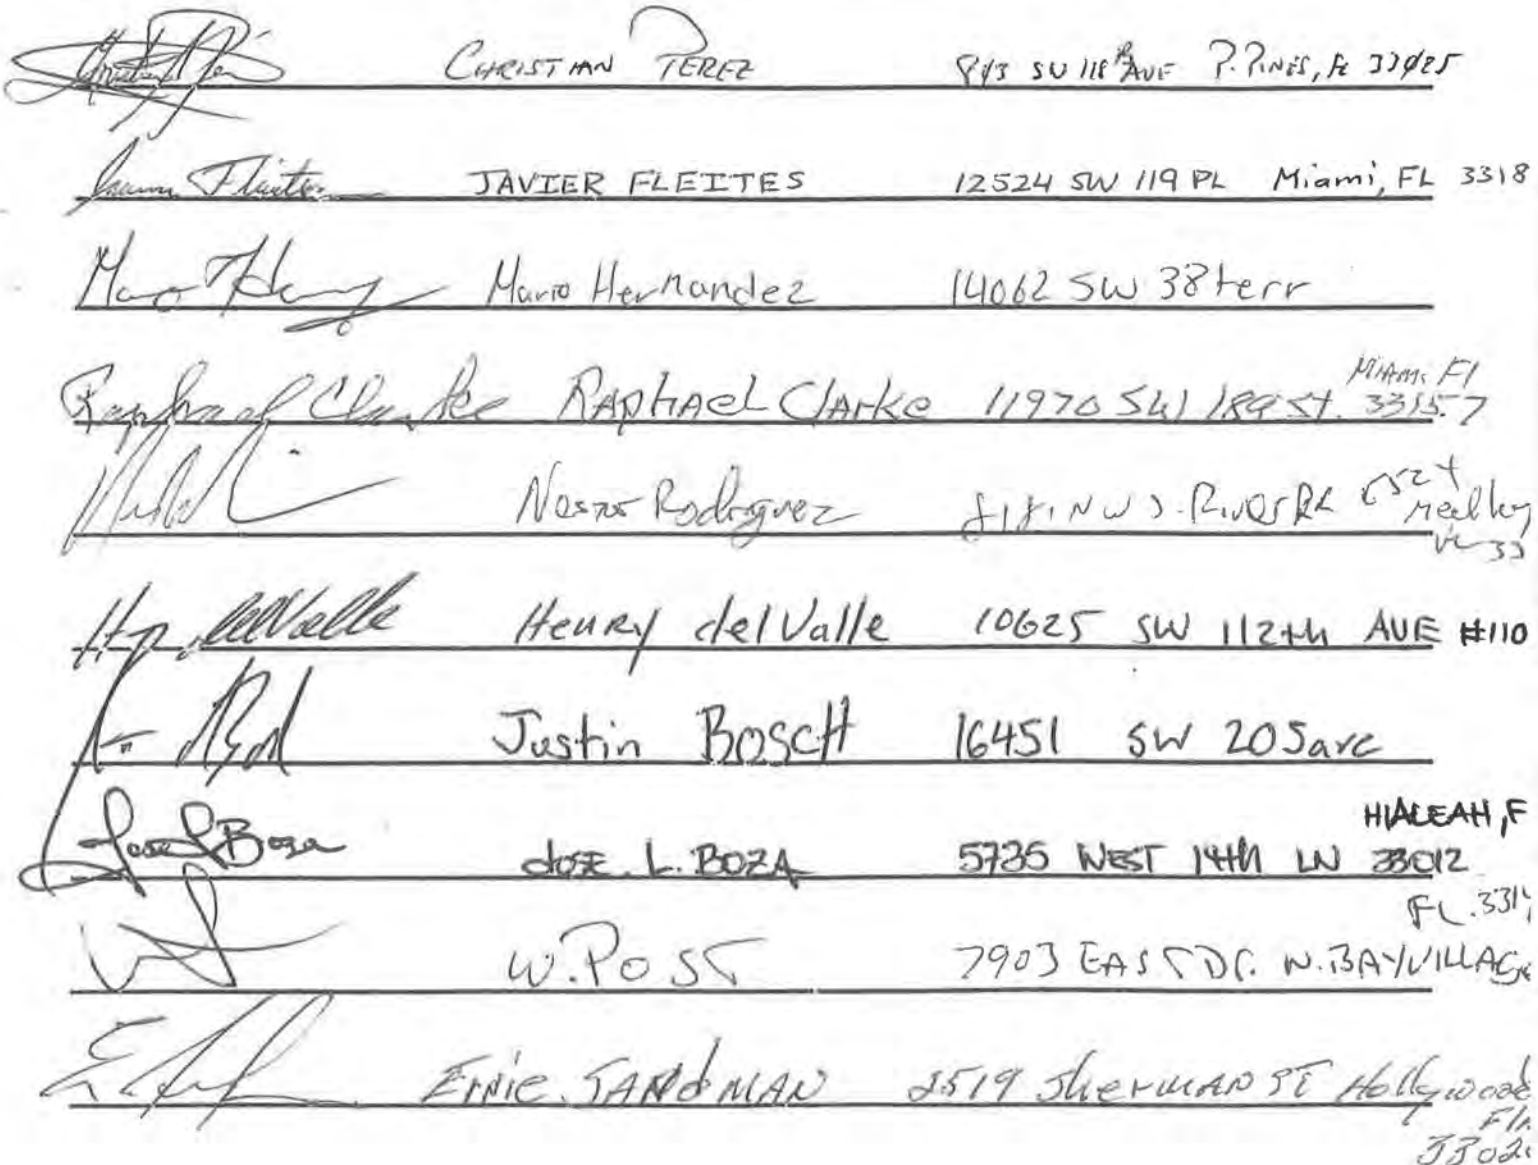 CHRISTIAN PEREZ 843 SW 118th AVE P. PINES, FL 33025
JAVIER FLEITES 12524 SW 119 PL Miami, FL 3318
Mario Hernandez 14062 SW 38 terr
Raphael Clarke RAphAel ClArke 11970 SW 189 st. Miami Fl 33157
Nestor Rodriguez N W S. River Rd Medley
Henry del Valle 10625 SW 112th AVE #110
Justin BOSCH 16451 SW 205 ave
Jose L Boza JOSE. L. BOZA 5735 WEST 14th LN HIALEAH, F 33012
W. POST 7903 EAST DR. N. BAY VILLAGE FL. 331
Ernie. SANdMAN 2519 SherMAN ST Hollywood Fla. 3302